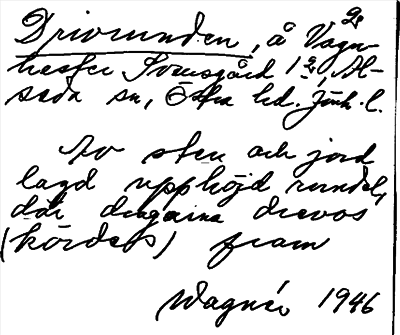 Drivrunden, å Vagn-
hester Svensgård 1 2, Al-
seda sn, Östra hd. Jönk. l.
Av sten och jord
lagd upphöjd rundel,
där dragarna drevos
(kördes) fram
Wagnér 1946